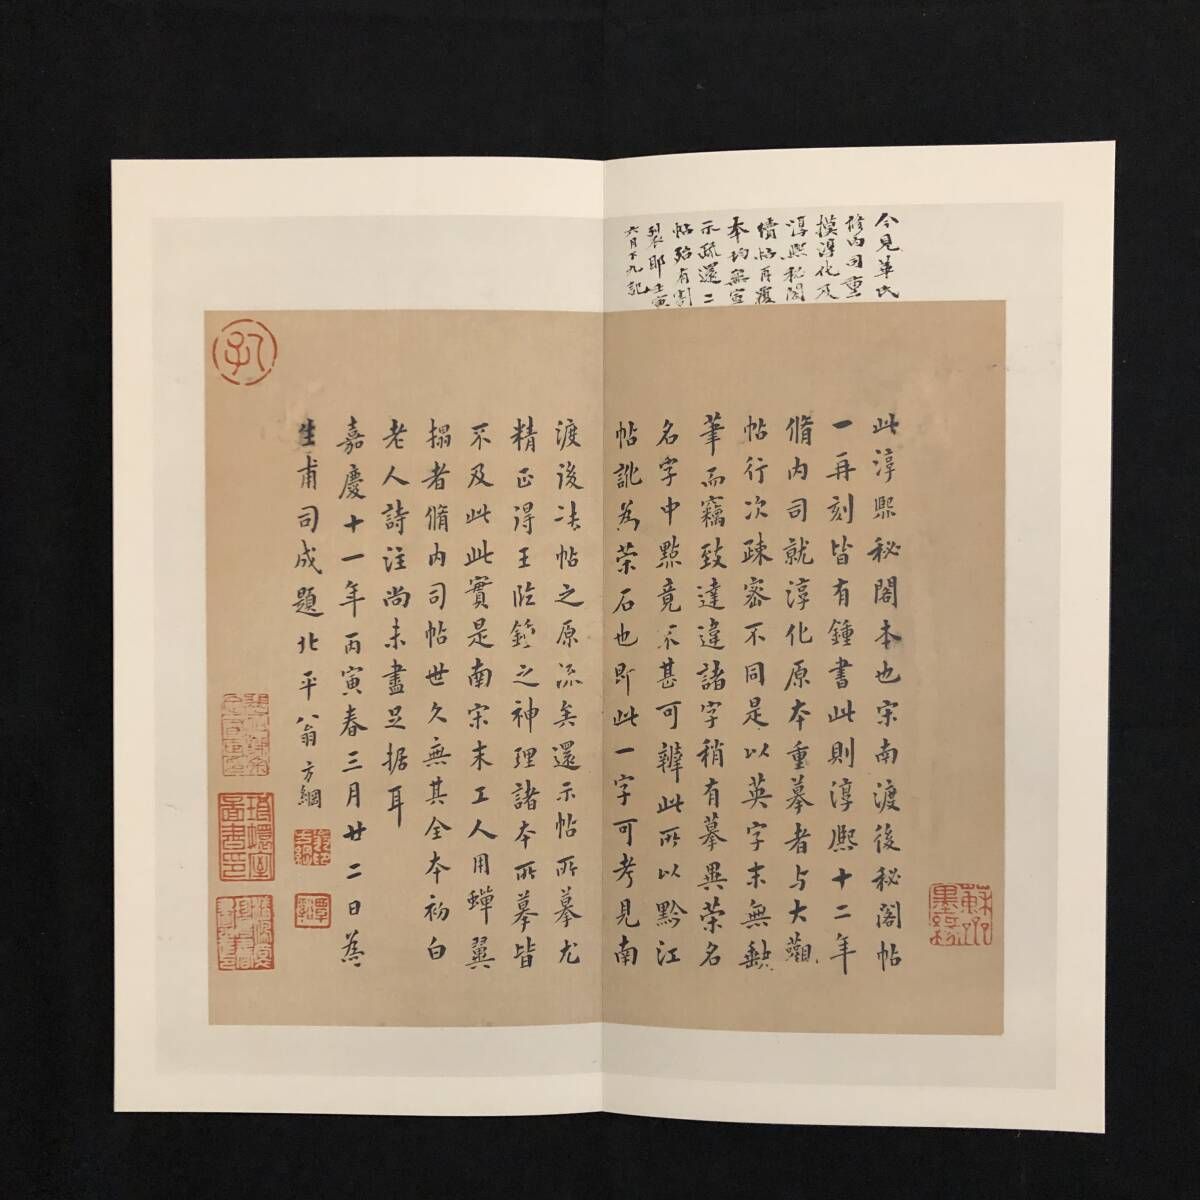 今見華氏
修内司重
摸淳化及
淳熙秘閣
續帖再覆
本均無宣
示疏還二
帖殆有割
製耶壬寅
六月下九記
此淳熙秘閣本也宋南渡後秘閣帖
一再刻皆有鍾書此則淳熙十二年
脩内司就淳化原本重摹者与大觀
帖行次疎密不同是以英字末無缺
筆而竊致達違諸字稍有摹異荣名
名字中點竟不甚可辨此所以黔江
帖訛為荣石也即此一字可考見南
渡後法帖之原流矣還示帖所摹尤
精正得王臨鍾之神理諸本所摹皆
不及此此實是南宋末工人用蟬翼
搨者脩内司帖世久無其全本初白
老人詩注尚未盡足據耳
嘉慶十一年丙寅春三月廿二日為
生甫司成題北平翁方綱